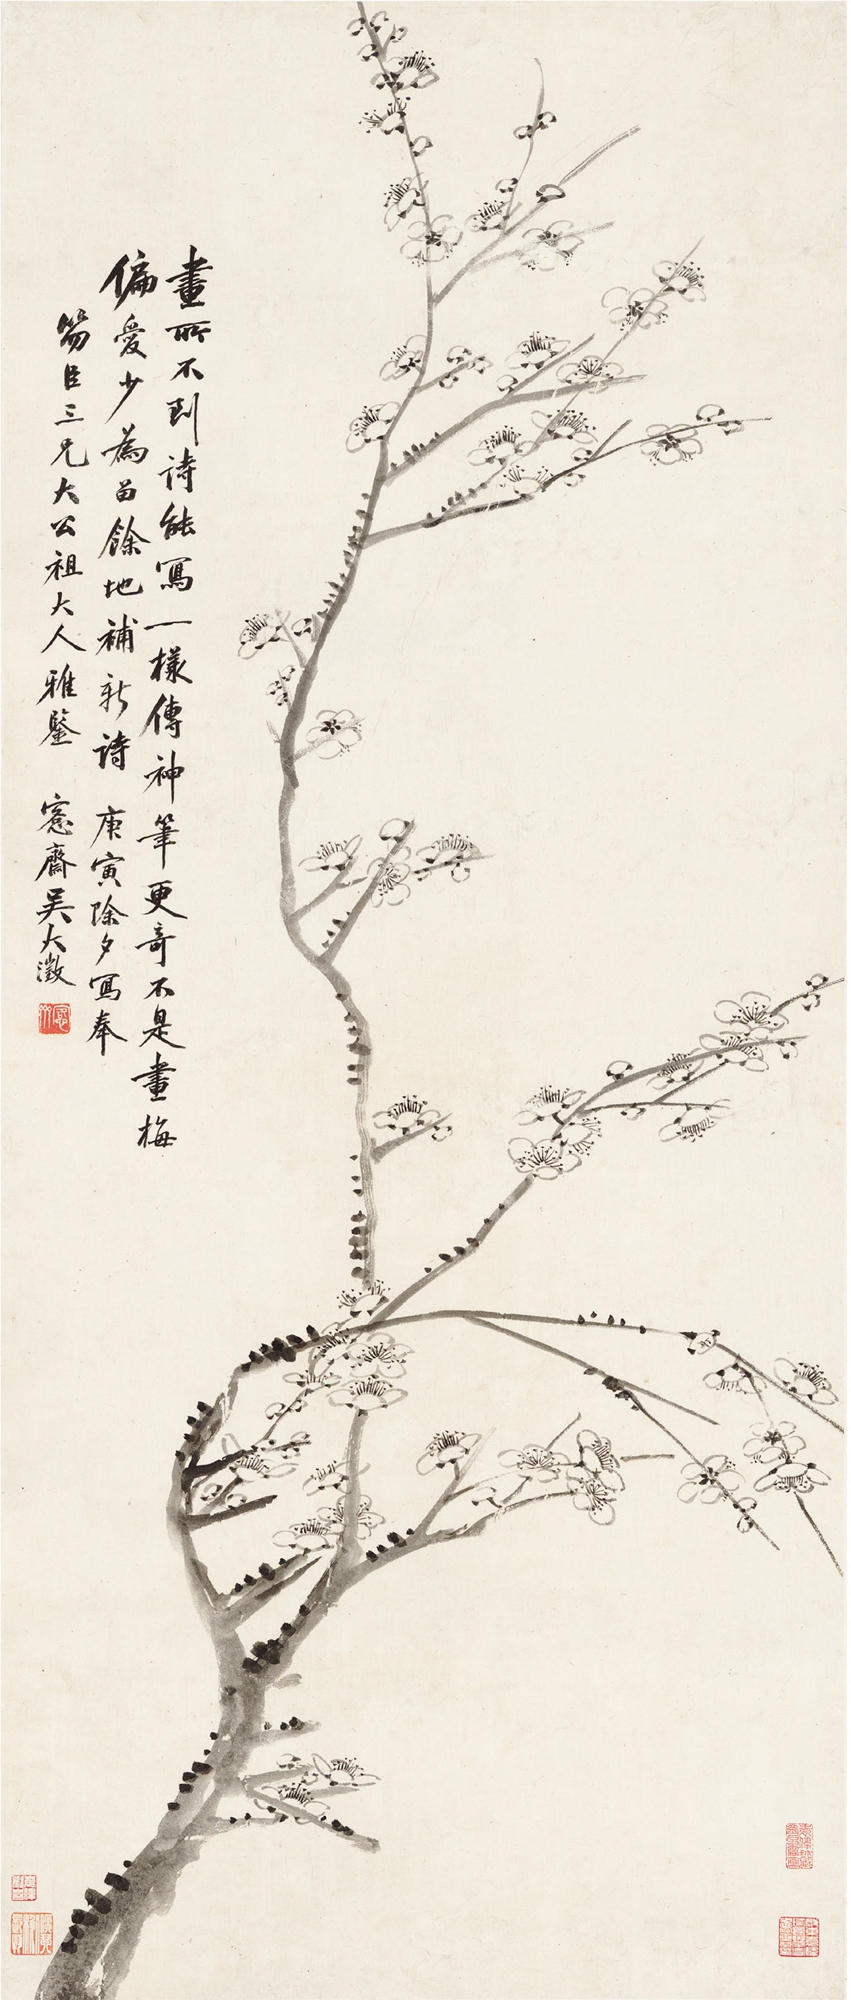 畫所不到詩能寫一樣傳神筆更奇不是畫梅
偏愛少為留餘地補新詩 庚寅除夕寫奉
筱臣三兄大公祖大人雅鑒 愙齋吳大澂